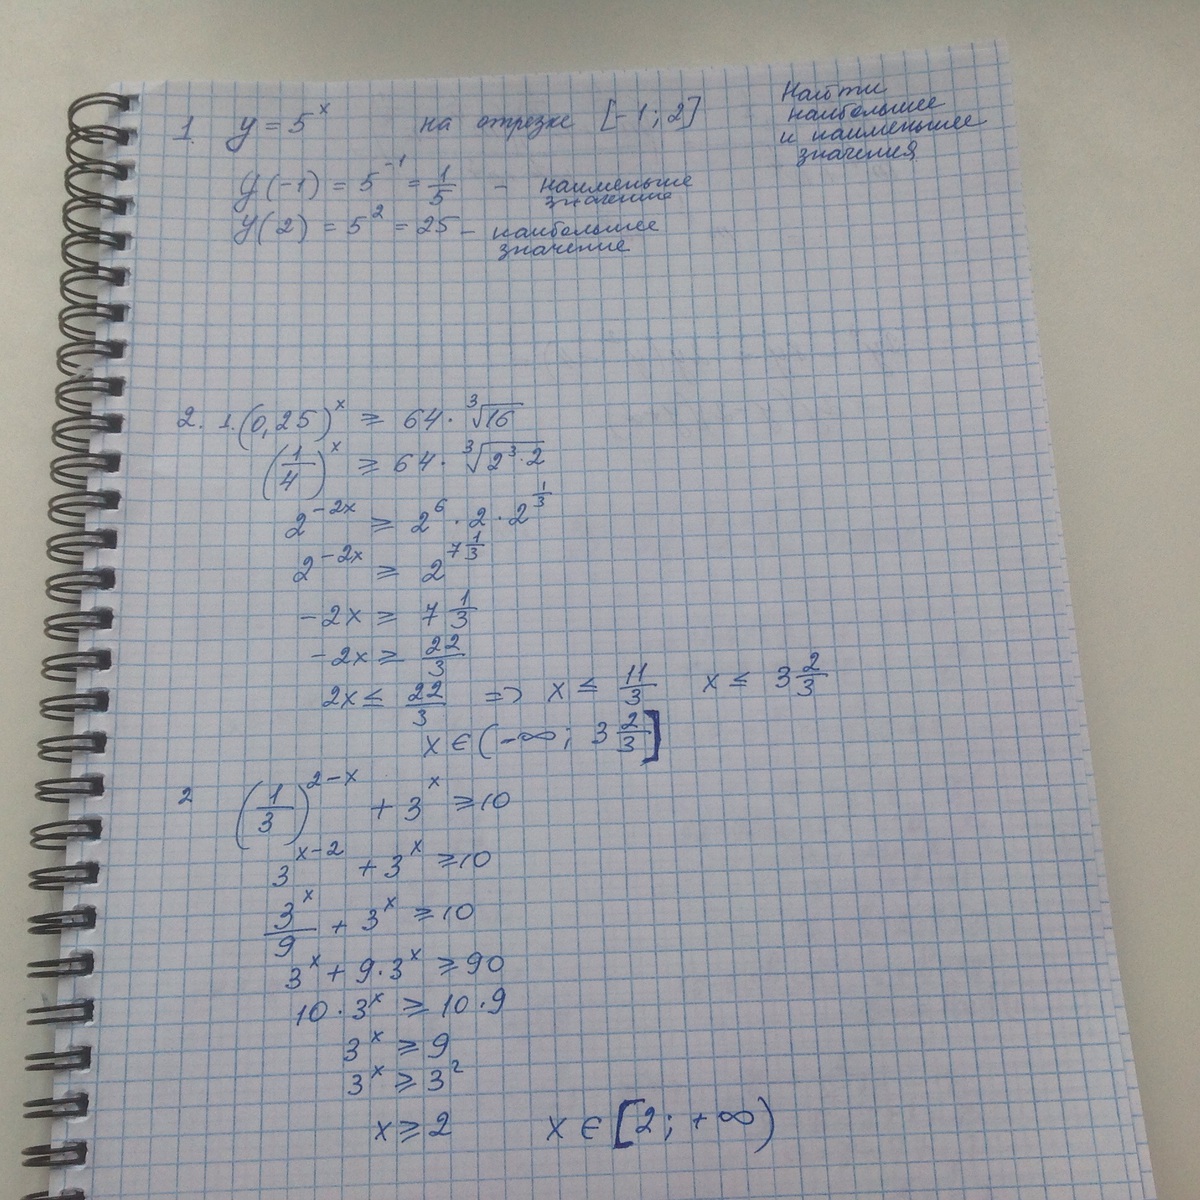 1. y = 5^x на отрезке [-1; 2] Найти наибольшее и наименьшее значения
y(-1) = 5^-1 = 1/5 - наименьше значение
y(2) = 5^2 = 25 - наибольшее значение
2. 1. (0,25)^x ≥ 64 · ∛16
(1/4)^x ≥ 64 · ∛(2^3 · 2)
2^(-2x) ≥ 2^6 · 2 · 2^(1/3)
2^(-2x) ≥ 2^(7 1/3)
-2x ≥ 7 1/3
-2x ≥ 22/3
2x ≤ 22/3 => x ≤ 11/3 x ≤ 3 2/3
x ∈ (-∞; 3 2/3]
2 (1/3)^(2-x) + 3^x ≥ 10
3^(x-2) + 3^x ≥ 10
3^x/9 + 3^x ≥ 10
3^x + 9 · 3^x ≥ 90
10 · 3^x ≥ 10 · 9
3^x ≥ 9
3^x ≥ 3^2
x ≥ 2 x ∈ [2; +∞)